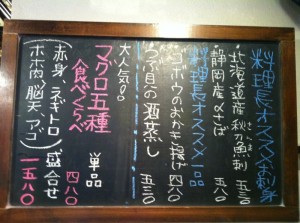 料理長オススメお刺身
北海道産秋刀魚刺 五三〇
静岡産〆さば 五八〇
料理長オススメ一品
ゴボウのおかき揚げ 四八〇
つぶ貝の酒蒸し 五三〇
大人気!!
マグロ五種
食べくらべ
単品 四八〇
(赤身、ネギトロ
ホホ肉、脳天、アゴ)
盛合せ 一五八〇